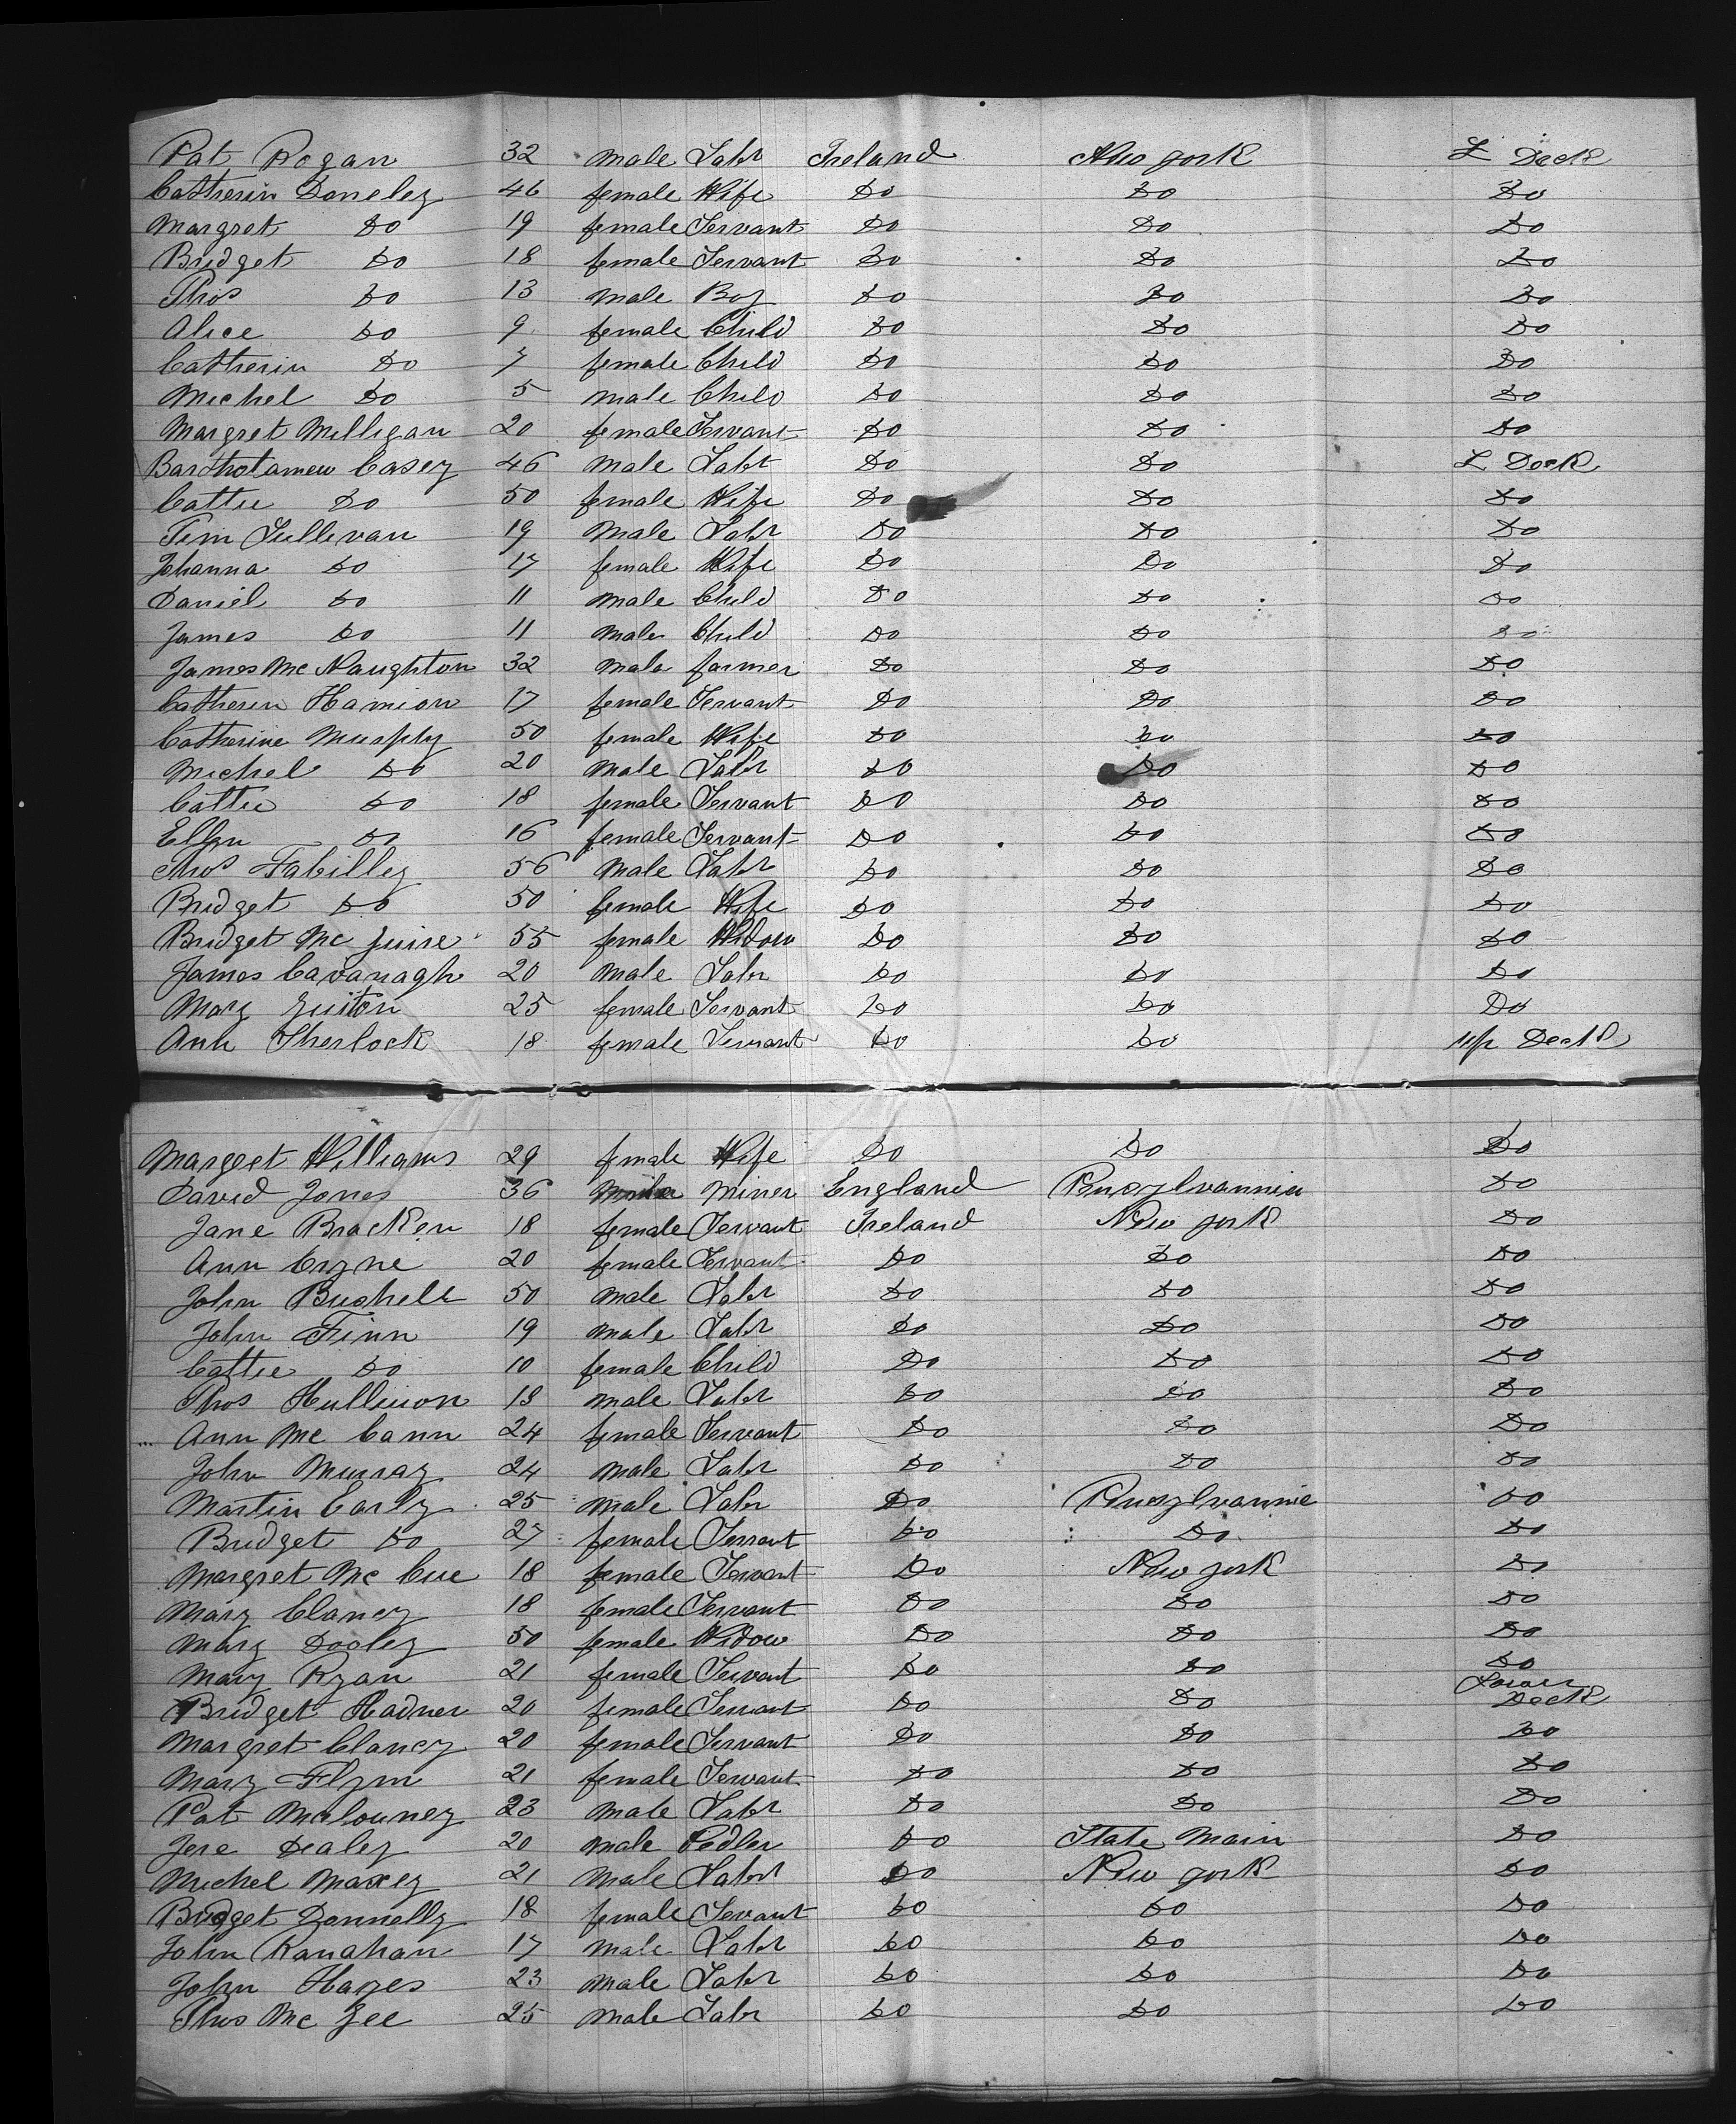 Pat Rogan 32 male Labr Ireland New york L Deck
Catherin Doneley 46 female Wife Do Do Do
Margret Do 19 female Servant Do Do Do
Bridget Do 18 female Servant Do Do Do
Thos Do 13 male Boy Do Do Do
Alice Do 9 female Child Do Do Do
Catherin Do 7 female Child Do Do Do
Michel Do 5 male Child Do Do Do
Margret Milligan 20 female Servant Do Do Do
Bartholamew Casey 46 male Labr Do Do L Deck
Cattie Do 50 female Wife Do Do Do
Tim Sullivan 19 male Labr Do Do Do
Johanna Do 17 female Wife Do Do Do
Daniel Do 11 male Child Do Do Do
James Do 11 male Child Do Do Do
James Mc Naughton 32 male farmer Do Do Do
Catherin Hamion 17 female Servant Do Do Do
Catherine Murphy 50 female Wife Do Do Do
Michel Do 20 male Labr Do Do Do
Cattie Do 18 female Servant Do Do Do
Ellen Do 16 female Servant Do Do Do
Thos Fabilley 56 male Labr Do Do Do
Bridget Do 50 female Wife Do Do Do
Bridget Mc guire 55 female Widow Do Do Do
James Cavanagh 20 male Labr Do Do Do
Mary guiton 25 female Servant Do Do Do
Ann Sherlock 18 female Servant Do Do up Deck
Margret Williams 29 female Wife Do Do Do
David Jones 36 male miner England Pensylvannia Do
Jane Bracken 18 female Servant Ireland New york Do
Ann Cryne 20 female Servant Do Do Do
John Bushell 50 male Labr Do Do Do
John Finn 19 male Labr Do Do Do
Cattie Do 10 female Child Do Do Do
Thos Hullison 18 male Labr Do Do Do
Ann Mc Cann 24 female Servant Do Do Do
John Murray 24 male Labr Do Do Do
Martin Early 25 male Labr Do Pensylvannie Do
Bridget Do 27 female Servant Do Do Do
Margret Mc Cue 18 female Servant Do New york Do
Mary Clancy 18 female Servant Do Do Do
Mary Dooley 50 female Widow Do Do Do
Mary Ryan 21 female Servant Do Do Do
Bridget Hadner 20 female Servant Do Do Lower Deck
Margret Clancy 20 female Servant Do Do Do
Mary Flynn 21 female Servant Do Do Do
Pat Malouney 23 male Labr Do Do Do
Jere Dealey 20 male Pedler Do State Main Do
Michel Maxey 21 male Labr Do New york Do
Bridget Donnelly 18 female Servant Do Do Do
John Ranahan 17 male Labr Do Do Do
John Hayes 23 male Labr Do Do Do
Thos Mc gee 25 male Labr Do Do Do